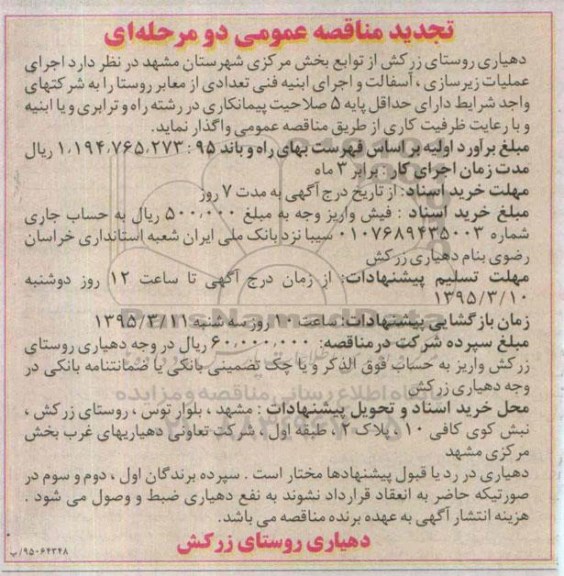 تجدید مناقصه عمومی دو مرحله‌ای
دهیاری روستای زرکش از توابع بخش مرکزی شهرستان مشهد در نظر دارد اجرای
عملیات زیرسازی ، آسفالت و اجرای ابنیه فنی تعدادی از معابر روستا را به شرکتهای
واجد شرایط دارای حداقل پایه ۵ صلاحیت پیمانکاری در رشته راه و ترابری و یا ابنیه
و با رعایت ظرفیت کاری از طریق مناقصه عمومی واگذار نماید.
مبلغ برآورد اولیه بر اساس فهرست بهای راه و باند ۹۵ : ۱،۱۹۴،۷۶۵،۲۷۳ ریال
مدت زمان اجرای کار : برابر ۳ ماه
مهلت خرید اسناد: از تاریخ درج آگهی به مدت ۷ روز
مبلغ خرید اسناد : فیش واریز وجه به مبلغ ۵۰۰،۰۰۰ ریال به حساب جاری
شماره ۰۱۰۷۶۸۹۴۳۵۰۰۳ سیبا نزد بانک ملی ایران شعبه استانداری خراسان
رضوی بنام دهیاری زرکش
مهلت تسلیم پیشنهادات: از زمان درج آگهی تا ساعت ۱۲ روز دوشنبه
۱۳۹۵/۳/۱۰
زمان بازگشایی پیشنهادات: ساعت ۱۰ روز سه شنبه ۱۳۹۵/۳/۱۱
مبلغ سپرده شرکت در مناقصه: ۶۰،۰۰۰،۰۰۰ ریال در وجه دهیاری روستای
زرکش واریز به حساب فوق الذکر و یا چک تضمینی بانکی یا ضمانتنامه بانکی در
وجه دهیاری زرکش
محل خرید اسناد و تحویل پیشنهادات : مشهد ، بلوار توس ، روستای زرکش ،
نبش کوی کافی ۱۰ ، پلاک ۲ ، طبقه اول ، شرکت تعاونی دهیاریهای غرب بخش
مرکزی مشهد
دهیاری در رد یا قبول پیشنهادها مختار است . سپرده برندگان اول ، دوم و سوم در
صورتیکه حاضر به انعقاد قرارداد نشوند به نفع دهیاری ضبط و وصول می شود .
هزینه انتشار آگهی به عهده برنده مناقصه می باشد.
دهیاری روستای زرکش
۹۵۰۶۴۳۴۸/پ
ParsNamadData
پایگاه اطلاع رسانی مناقصه و مزایده